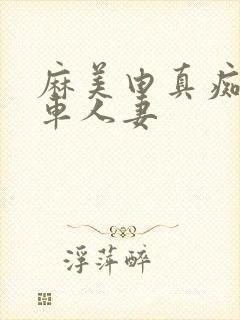 麻美由真痴
車人妻
浮萍醉